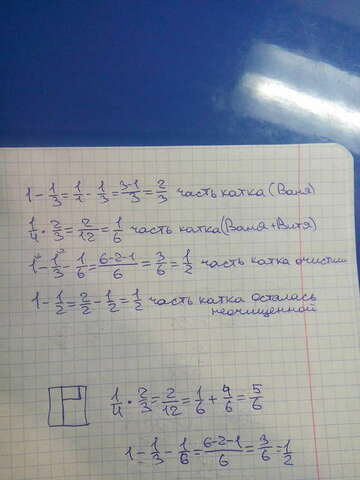 1 - 1/3 = 1/1 - 1/3 = 3-1/3 = 2/3 часть катка (Ваня)
1/4 · 2/3 = 2/12 = 1/6 часть катка (Ваня + Витя)
1 - 1/3 - 1/6 = 6-2-1/6 = 3/6 = 1/2 часть катка очистили
1 - 1/2 = 2/2 - 1/2 = 1/2 часть катка осталась
неочищенной
1/4 · 2/3 = 2/12 = 1/6 + 4/6 = 5/6
1 - 1/3 - 1/6 = 6-2-1/6 = 3/6 = 1/2